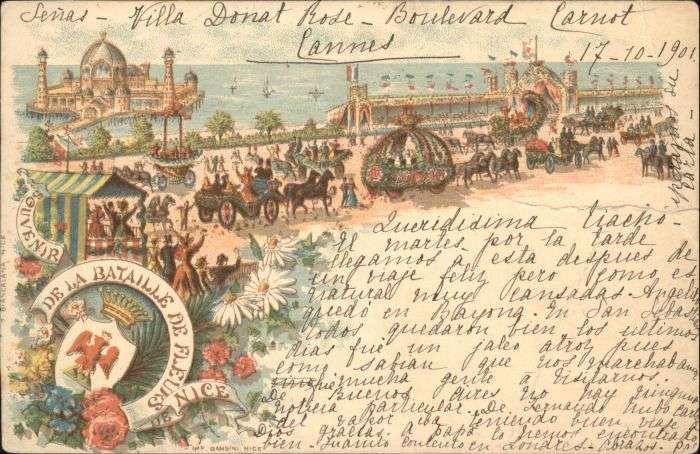 Señas - Villa Donat Rose - Boulevard Carnot
Cannes
17-10-1901.
SOUVENIR
DE LA BATAILLE DE FLEURS
DE NICE
Queridisima Nacho-
El martes por la tarde
llegamos a esta despues de
un viaje feliz pero como es
natural muy cansadas. Angela
quedó en Bayona. En San Sebas
todos quedaron bien los ultimos
dias fué un jaleo atroz pues
como sabian que nos marchabamos
mucha gente a visitarnos.
De Buenos Aires no hay ninguna
noticia particular. De Fernando hubo
del vapor iba teniendo buen viaje
Dios gracias. a papa lo hemos encontrado
bien. cuando contento en Londres.
GIANGRANA NICE
IMP. GANDINI, NICE